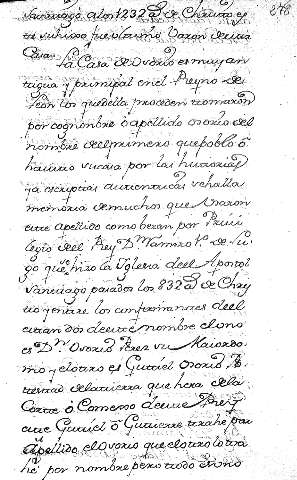 Santiago a los 1232 aº de Christo es
te su hijo fue ultimo Varon de su
Casa.
La Casa de Osorio es muy an
tigua y principal en el Reyno de
Leon los que della proceden tomaron
por cognonbre ô apellido osorio del
nombre del primero que poblo ô
hauito su casa por las historias
ya escriptas autenticas se halla
memoria de muchos que usaron
este apellido como beran por Priui
legio del Rey Dⁿ Ramiro 1º de
go que hizo la Iglesia del Apostol
Santiago pasados los 832 aº de Chr
to y entre los confirmantes del
estan dos deeste nombre el uno
es Dⁿ Osorio Perez su Maiordo
mo y el otro es Gutiel Osorio
de la tierra que hera de la
Corte ô Comerso de este Rey
este Gutiel ô Gutierre trahe por
Apellido el Osorio que el otro lo tra
he por nombre pero todo es uno